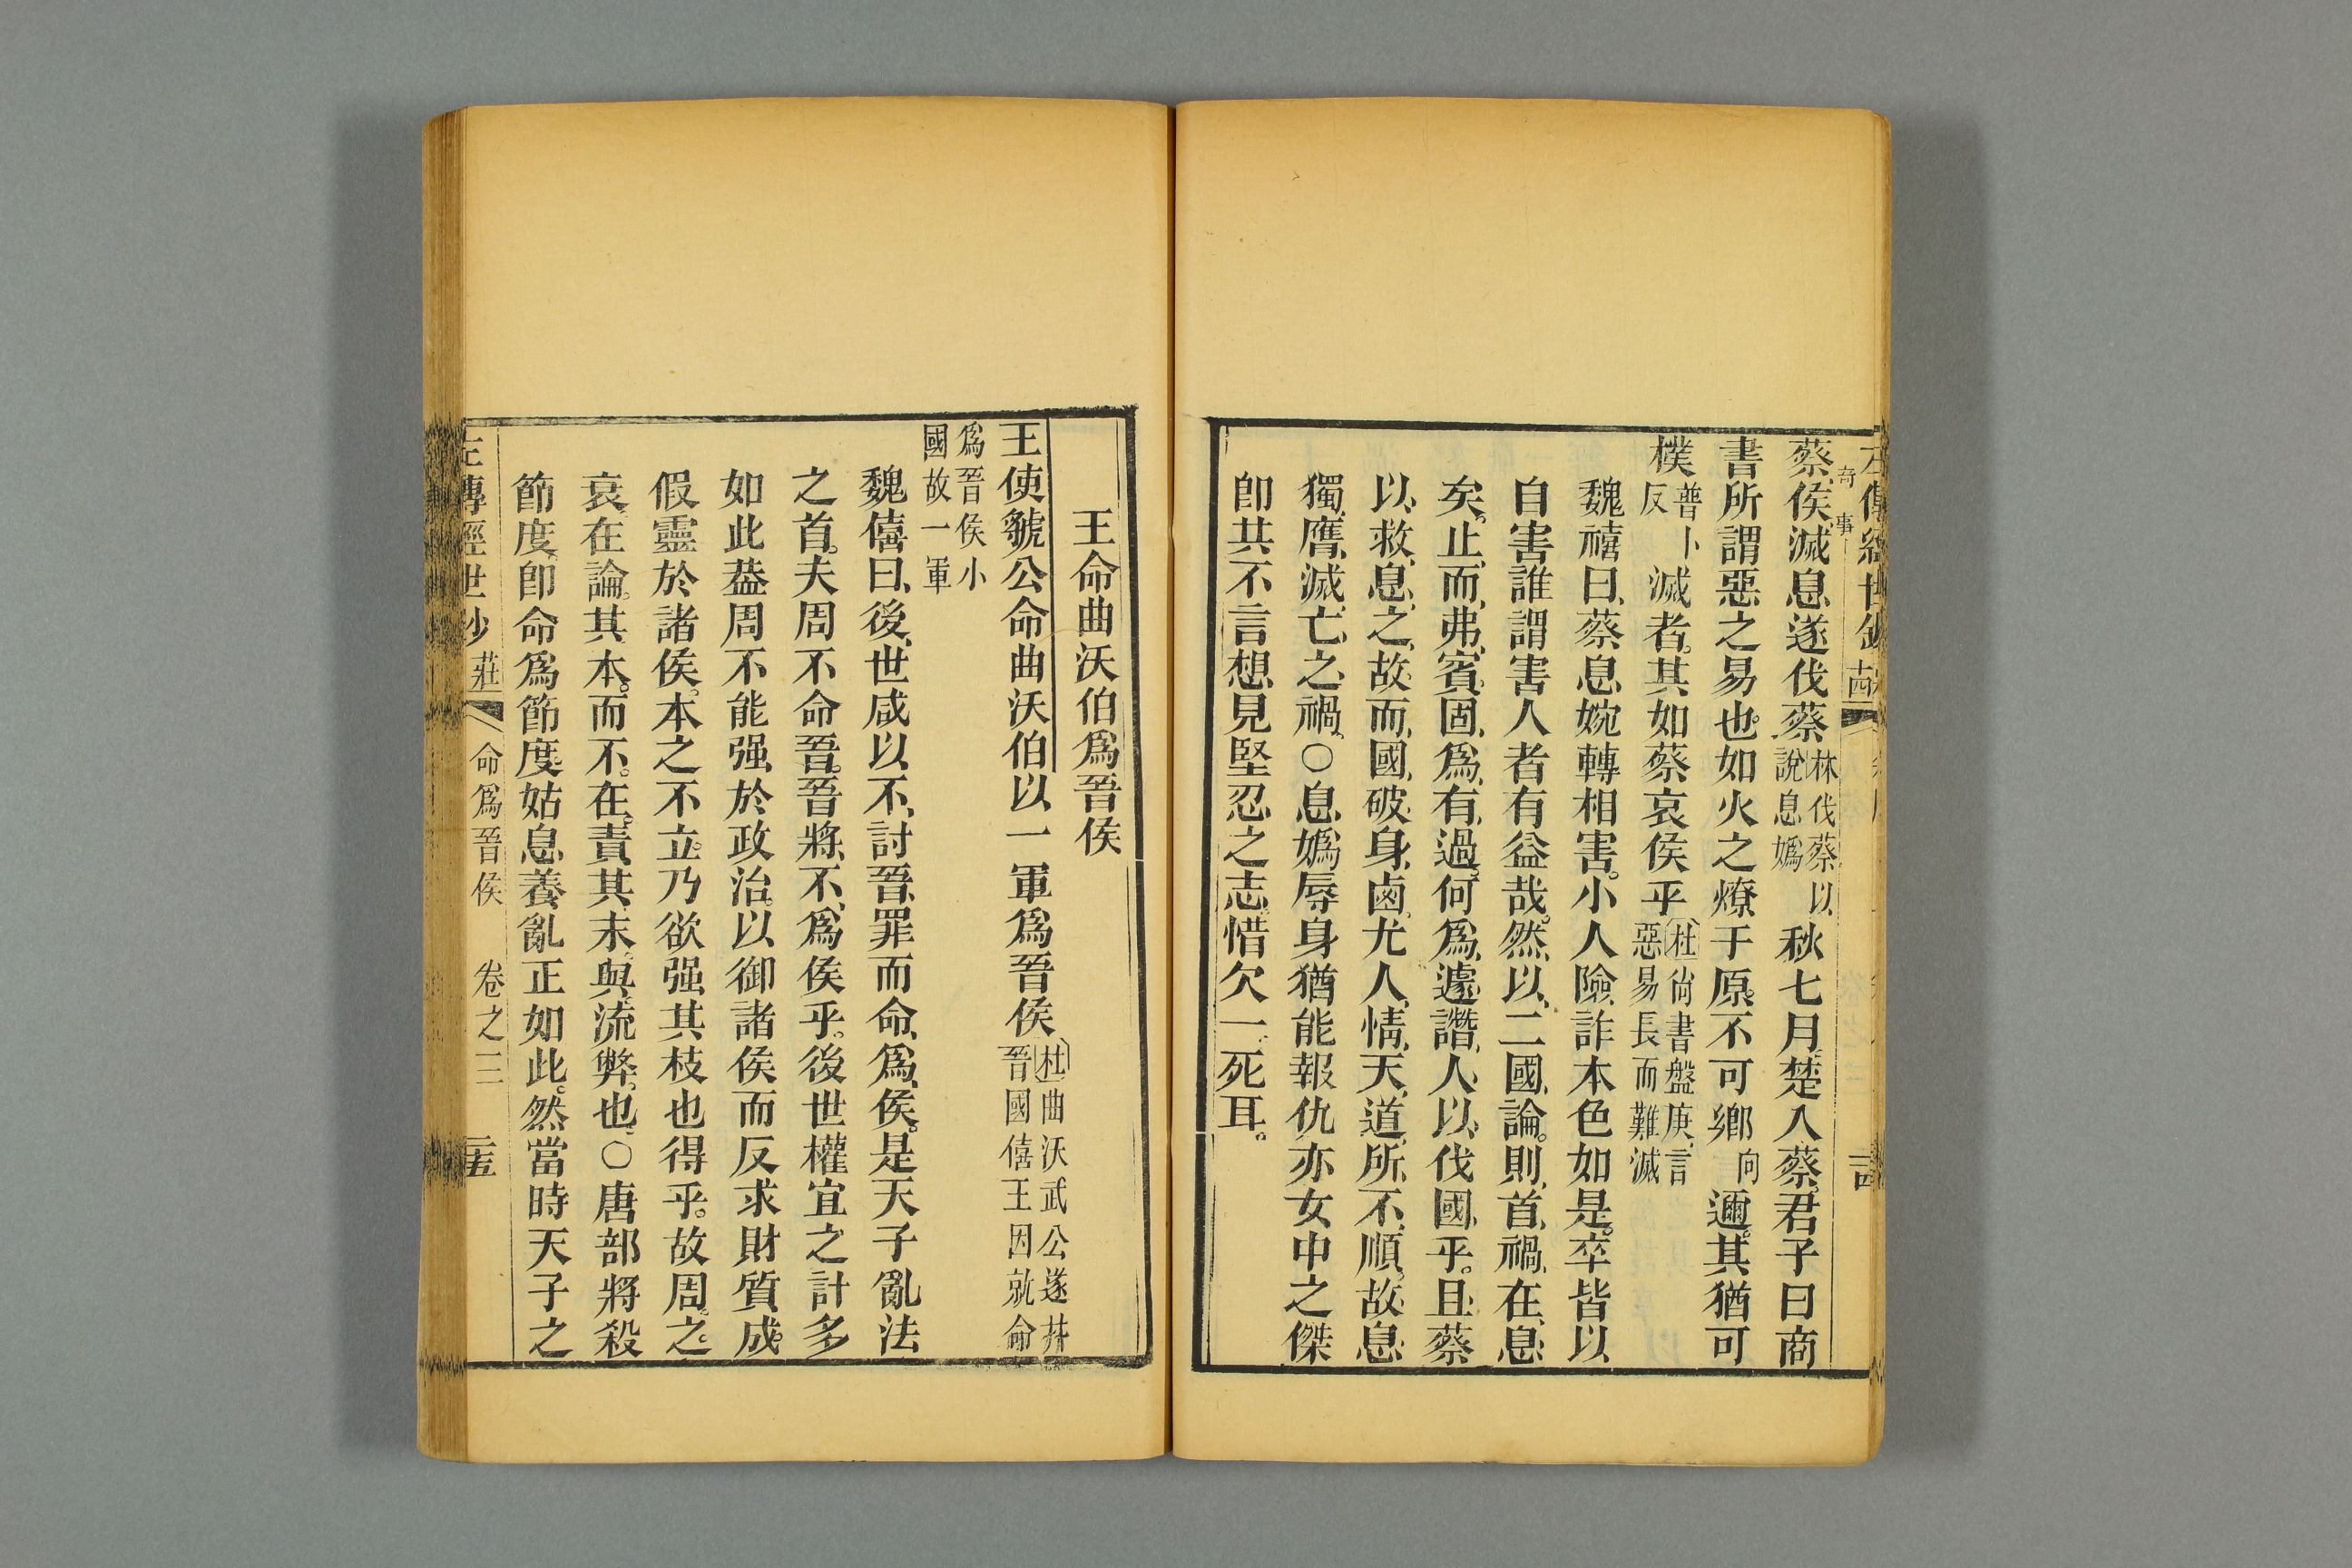 奇事
蔡侯滅息遂伐蔡林伐蔡以說息嬀秋七月楚入蔡君子曰商
書所謂惡之易也如火之燎于原不可鄉向邇其猶可
撲普卜反滅者其如蔡哀侯乎杜尚書盤庚言惡易長而難滅
魏禧曰蔡息婉轉相害小人險詐本色如是卒皆以
自害誰謂害人者有益哉然以二國論則首禍在息
矣止而弗賓固爲有過何爲遽譖人以伐國乎且蔡
以救息之故而國破身鹵尤人情天道所不順故息
獨膺滅亡之禍○息嬀辱身猶能報仇亦女中之傑
卽其不言想見堅忍之志惜欠一死耳
王命曲沃伯爲晉侯
王使虢公命曲沃伯以一軍爲晉侯杜曲沃武公遂并晉國僖王因就命
爲晉侯小國故一軍
魏僖曰後世咸以不討晉罪而命爲侯是天子亂法
之首夫周不命晉晉將不爲侯乎後世權宜之計多
如此葢周不能强於政治以御諸侯而反求財質成
假靈於諸侯本之不立乃欲强其枝也得乎故周之
衰在論其本而不在責其末與流弊也○唐部將殺
節度卽命爲節度姑息養亂正如此然當時天子之
左傳經世鈔 莊 命爲晉侯 卷之三 二五